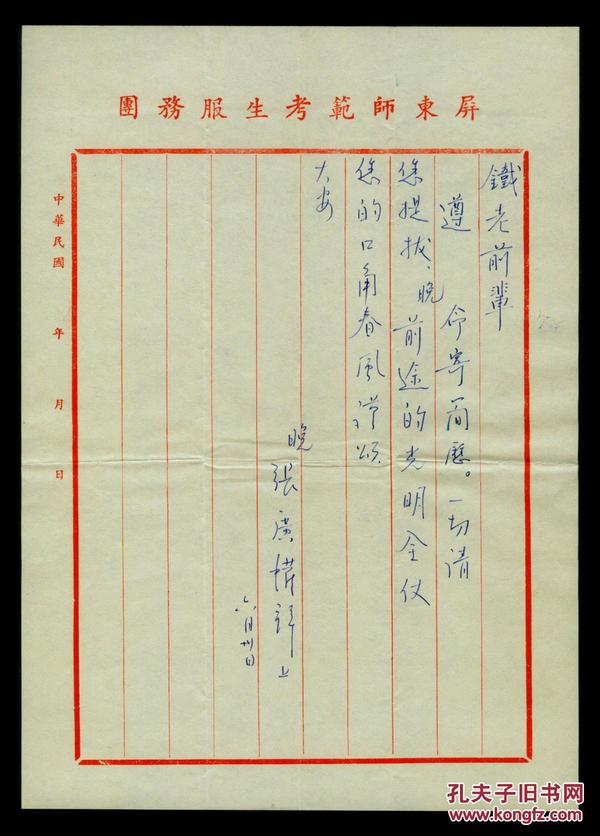 屏東師範考生服務團
鐵老前輩
遵 命寄簡歷。一切請
您提拔、晚前途的光明全仗
您的口角春風 謹頌
大安
晚 張廣 謹上
六月卅日
中華民國 年 月 日
孔夫子旧书网
www.kongfz.com